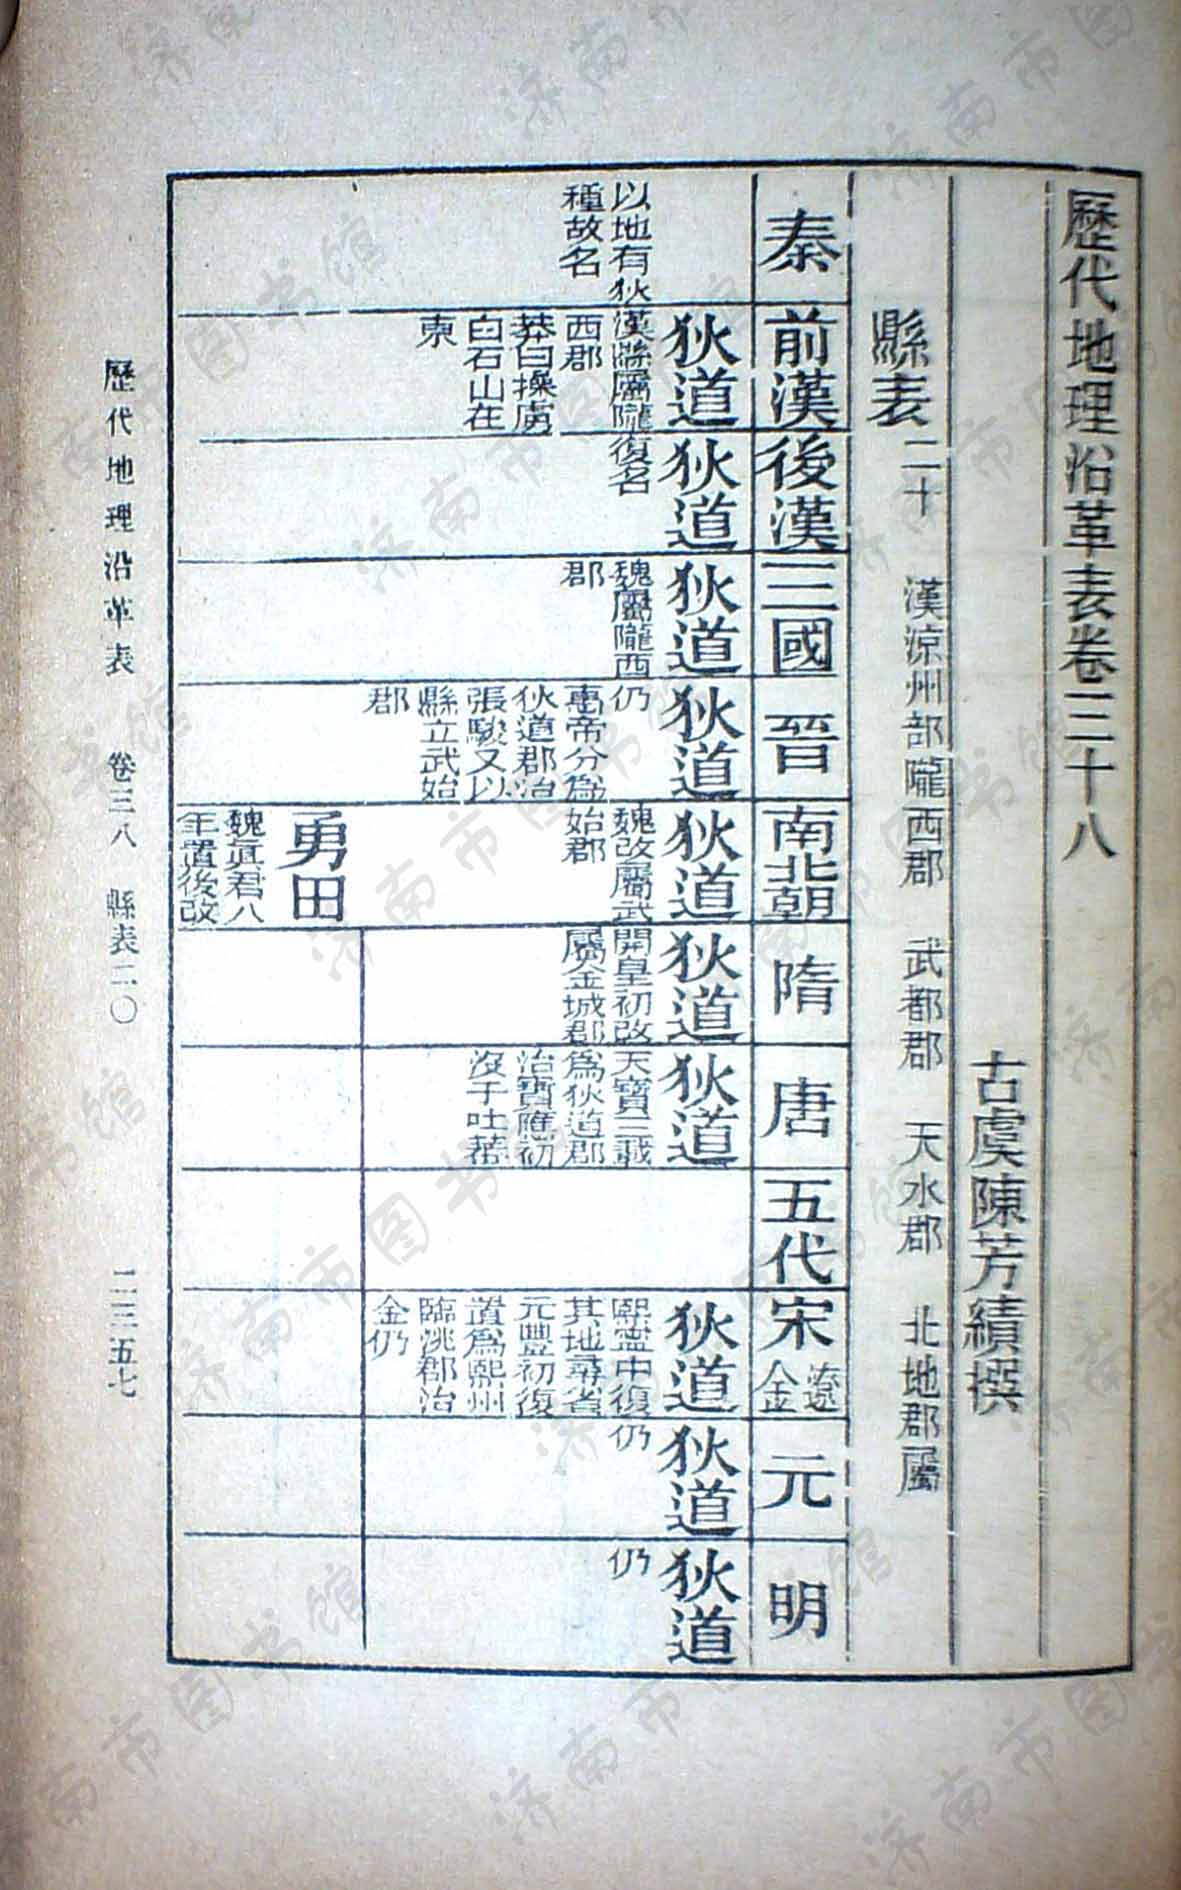 歷代地理沿革表卷三十八
古虞陳芳績撰
縣表二十 漢涼州部隴西郡 武都郡 天水郡 北地郡屬
秦
前漢
後漢
三國
晉
南北朝
隋
唐
五代
宋遼金
元
明
以地有狄
種故名
狄道
漢縣屬隴
西郡
莽曰操虜
白石山在
東
狄道
復名
狄道
魏屬隴西
郡
狄道
仍
惠帝分爲
狄道郡治
張駿又以
縣立武始
郡
狄道
魏改屬武
始郡
狄道
開皇初改
屬金城郡
狄道
天寶三載
爲狄道郡
治寶應初
沒于吐蕃
狄道
熙寧中復
其地尋省
元豐初復
置爲熙州
臨洮郡治
金仍
狄道
仍
狄道
仍
勇田
魏眞君八
年置後改
歷代地理沿革表 卷三八 縣表二〇 二三五七
济南市图书馆